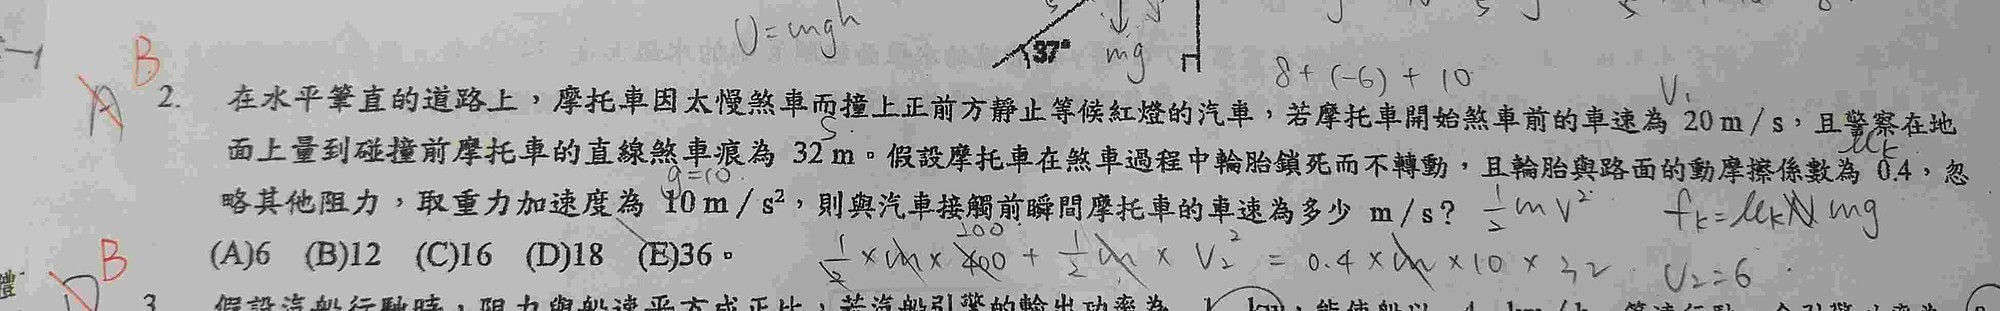 U=mgh
37°
mg
8+(-6)+10
B
A
2. 在水平筆直的道路上，摩托車因太慢煞車而撞上正前方靜止等候紅燈的汽車，若摩托車開始煞車前的車速為 20 m / s，且警察在地
V₁
S
面上量到碰撞前摩托車的直線煞車痕為 32 m。假設摩托車在煞車過程中輪胎鎖死而不轉動，且輪胎與路面的動摩擦係數為 0.4，忽
μk
g=10
略其他阻力，取重力加速度為 10 m / s²，則與汽車接觸前瞬間摩托車的車速為多少 m / s？
½mv² fk=μkN mg
(A)6 (B)12 (C)16 (D)18 (E)36。
200
½×m×400+½m×V₂²=0.4×m×10×32 V₂=6
B
D
3. 假設汽船行駛時，阻力與船速平方成正比，若汽船引擎的輸出功率為